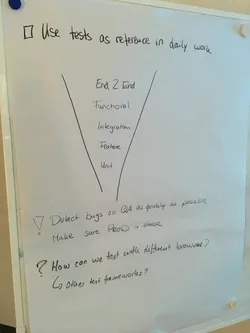 Use tests as reference in daily work
End 2 End
Functional
Integration
Feature
Unit
! Detect bugs on QA as quickly as possible
Make sure PROD is stable
? How can we test with different browsers?
↳ Other test frameworks?